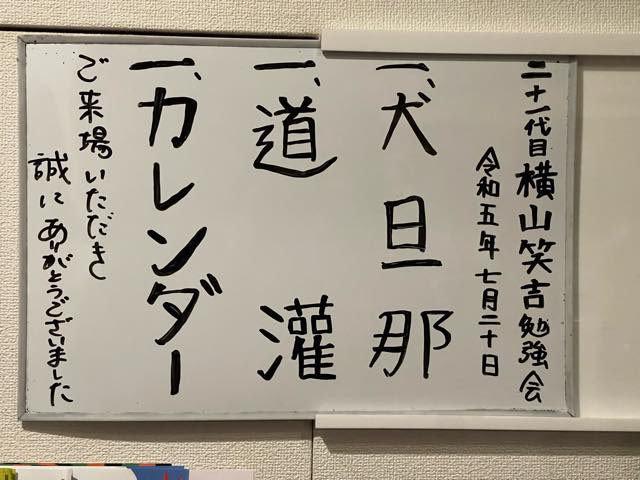 二十一代目横山笑吉勉強会
令和五年七月二十日
一、犬旦那
一、道灌
一、カレンダー
ご来場いただき
誠にありがとうございました